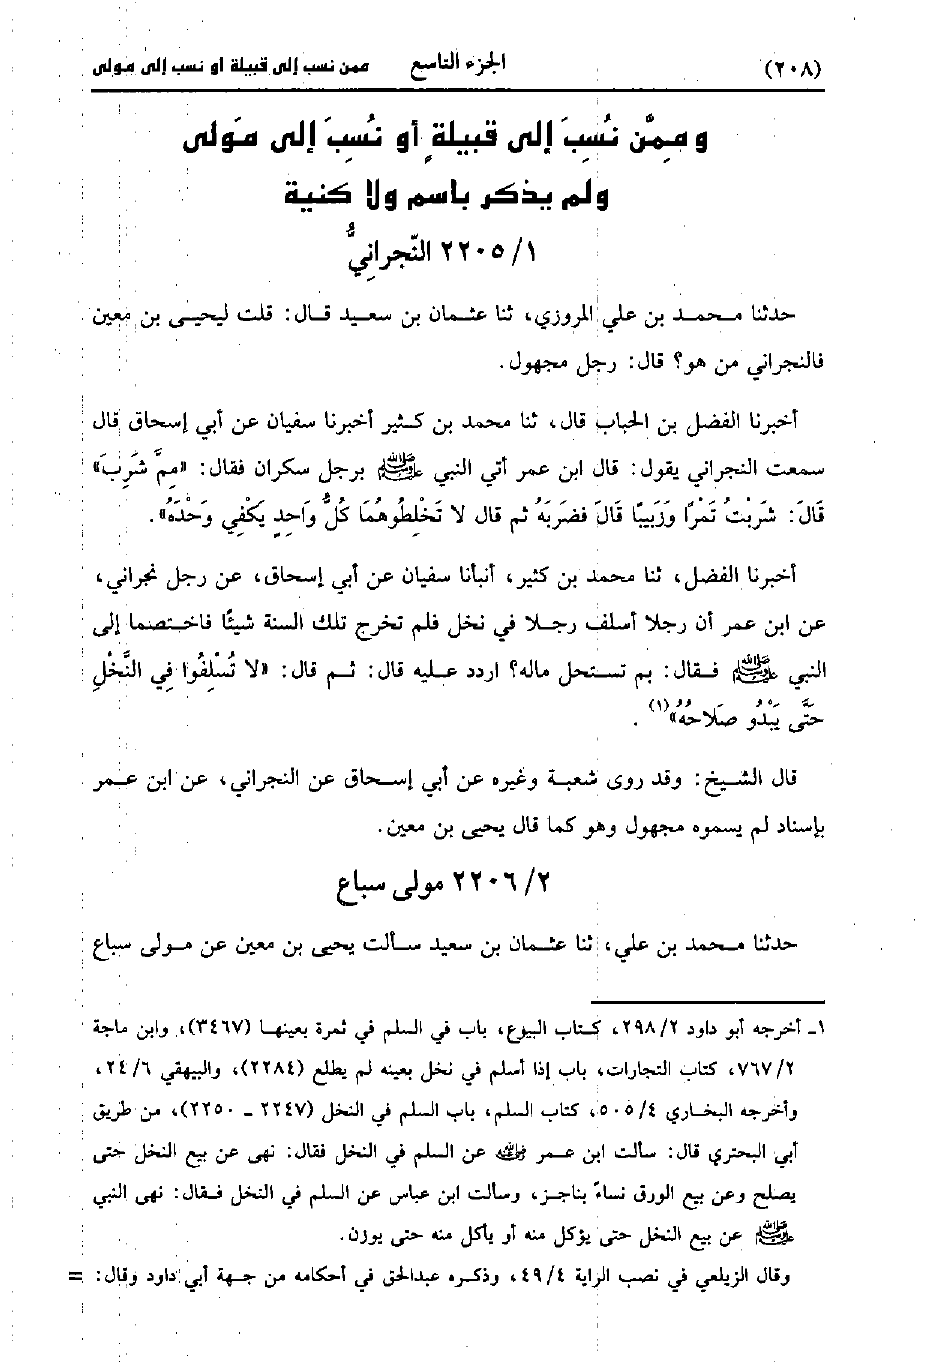 (٢٠٨) الجزء التاسع ممن نسب إلى قبيلة او نسب إلى مولى
وممِنَّ نُسِبَ إلى قبيلةٍ أو نُسِبَ إلى مَولى
ولم يذكر باسم ولا كنية
٢٢٠٥/١ النّجرانيُّ
حدثنا محمد بن علي المروزي، ثنا عثمان بن سعيد قال: قلت ليحيى بن معين
فالنجراني من هو؟ قال: رجل مجهول.
أخبرنا الفضل بن الحباب قال، ثنا محمد بن كثير أخبرنا سفيان عن أبي إسحاق قال
سمعت النجراني يقول: قال ابن عمر أتي النبي ﷺ برجل سكران فقال: «مِمَّ شَرِبَ»
قَالَ: شَرِبْتُ تَمْرًا وَزَبِيبًا قَالَ فَضَرَبَهُ ثم قال لا تَخْلِطُوهُمَا كُلُّ وَاحِدٍ يَكْفِي وَحْدَهُ».
أخبرنا الفضل، ثنا محمد بن كثير، أنبأنا سفيان عن أبي إسحاق، عن رجل نجراني،
عن ابن عمر أن رجلا أسلف رجلا في نخل فلم تخرج تلك السنة شيئًا فاختصما إلى
النبي ﷺ فقال: بم تستحل ماله؟ اردد عليه قال: ثم قال: «لا تُسْلِفُوا فِي النَّخْلِ
حَتَّى يَبْدُو صَلَاحهُ»(١).
قال الشيخ: وقد روى شعبة وغيره عن أبي إسحاق عن النجراني، عن ابن عمر
بإسناد لم يسموه مجهول وهو كما قال يحيى بن معين.
٢٢٠٦/٢ مولى سباع
حدثنا محمد بن علي، ثنا عثمان بن سعيد سألت يحيى بن معين عن مولى سباع
١ـ أخرجه أبو داود ٢٩٨/٢، كتاب البيوع، باب في السلم في ثمرة بعينها (٣٤٦٧)، وابن ماجة
٧٦٧/٢، كتاب التجارات، باب إذا أسلم في نخل بعينه لم يطلع (٢٢٨٤)، والبيهقي ٢٤/٦،
وأخرجه البخاري ٥٠٥/٤، كتاب السلم، باب السلم في النخل (٢٢٤٧ - ٢٢٥٠)، من طريق
أبي البحتري قال: سألت ابن عمر ﵁ عن السلم في النخل فقال: نهى عن بيع النخل حتى
يصلح وعن بيع الورق نساءً بناجز، وسألت ابن عباس عن السلم في النخل فقال: نهى النبي
ﷺ عن بيع النخل حتى يؤكل منه أو يأكل منه حتى يوزن.
وقال الزيلعي في نصب الراية ٤٩/٤، وذكره عبدالحق في أحكامه من جهة أبي داود وقال: =